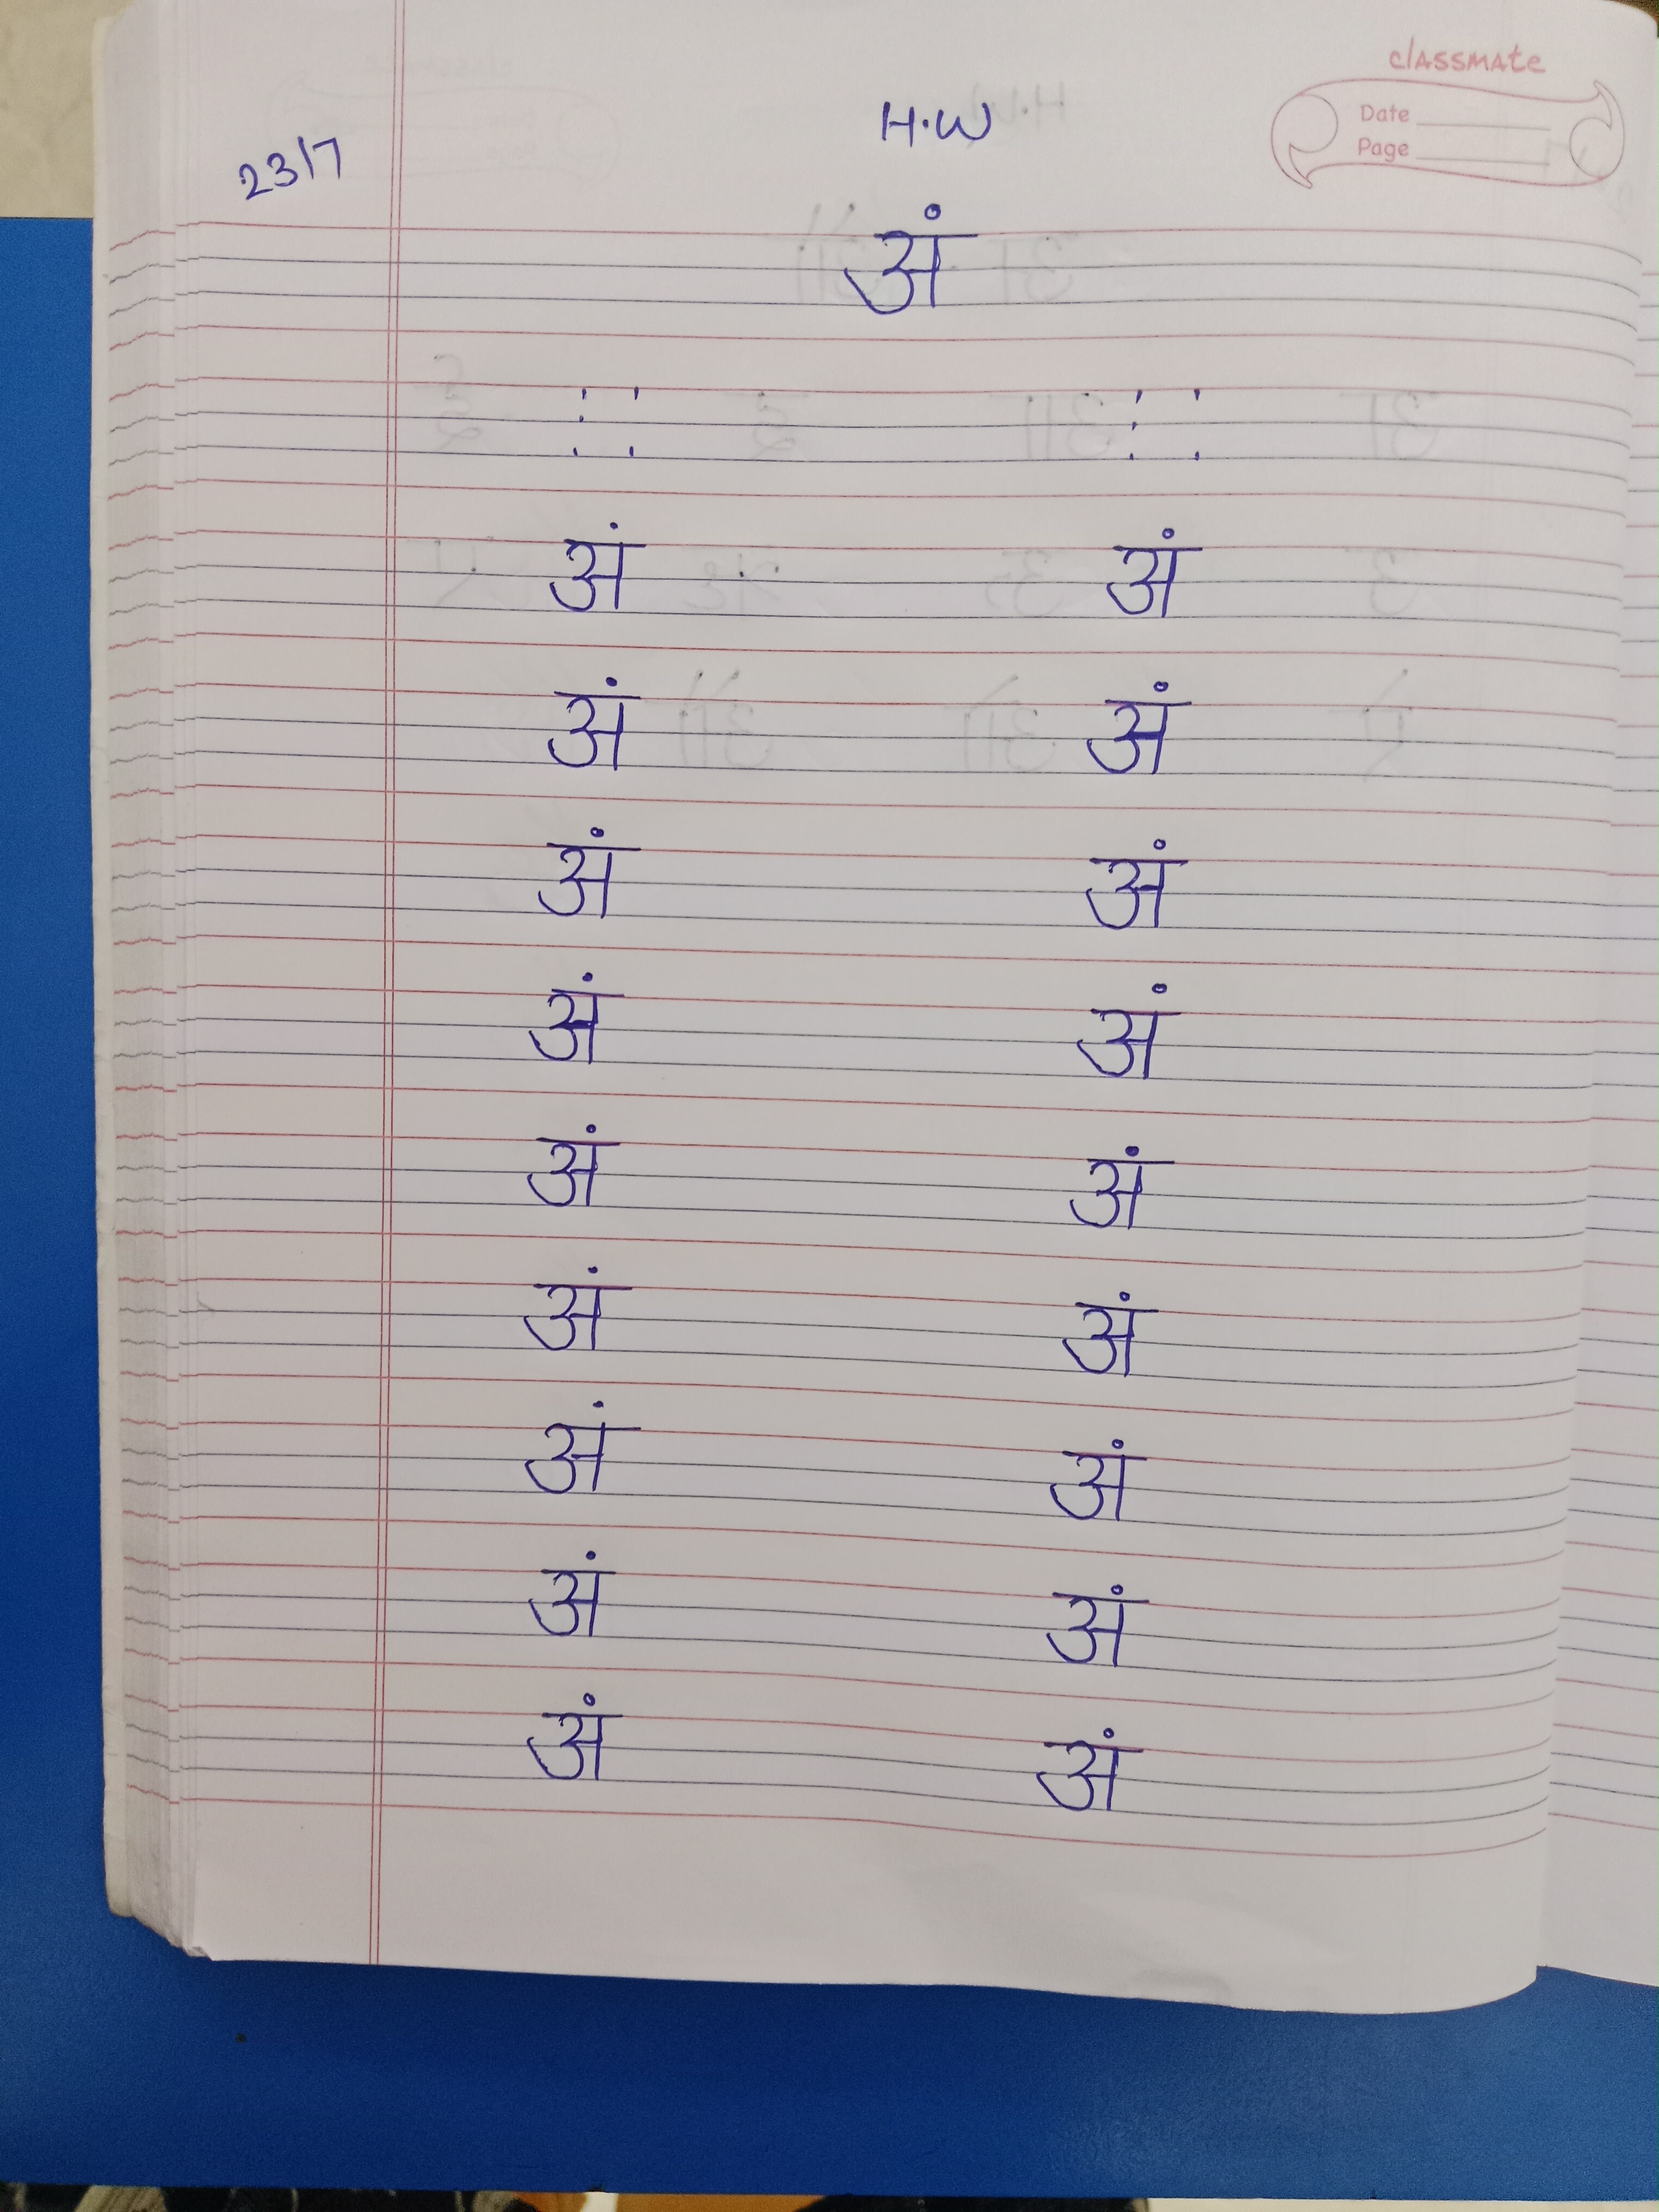 classmate
Date
Page
H.W
23/7
अं
अं अं
अं अं
अं अं
अं अं
अं अं
अं अं
अं अं
अं अं
अं अं